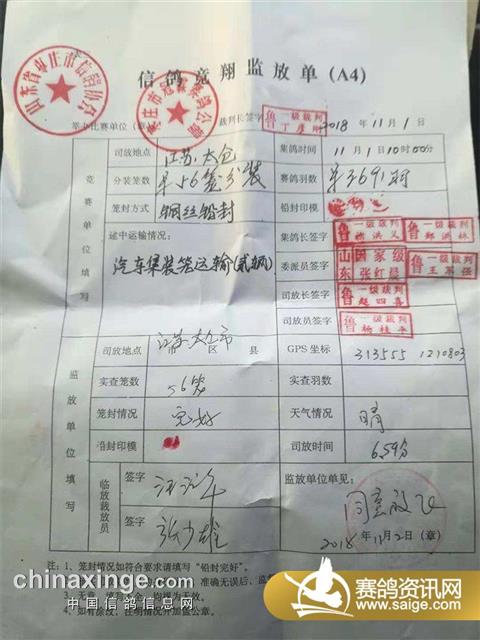 信鸽竞翔监放单(A4)
山东省枣庄市信鸽协会
举办比赛单位(章)
裁判长签字
鲁 一级裁判
2018年11月1日
竞赛单位填写
司放地点 江苏太仓 集鸽时间 11月1日10时00分
分装笼数 56笼分装 赛鸽羽数 3691羽
笼封方式 钢丝铅封 铅封印模
途中运输情况: 集鸽长签字 鲁 一级裁判 一级裁判
汽车集装笼运输(贰辆) 委派员签字 山东 国家级 张红晨 鲁 一级裁判
司放长签字 鲁 一级裁判 赵四喜
司放员签字 鲁 一级裁判 杨桂平
监放单位填写
司放地点 江苏太仓市 区 县 GPS坐标 313555 1210803
实查笼数 56笼 实查羽数
笼封情况 完好 天气情况 晴
铅封印模 司放时间 6:59分
临放裁放员
签字
签字 张少雄
监放单位单见:
同意放飞
2018年11月2日(章)
注:1、笼封情况如符合要求请填写“铅封完好”。
准确无误后,监
3、无章、填写不全,均视为无效。
4、如有涂改,注明情况并加盖公章。
chinaxinge.com
中国信鸽信息网
赛鸽资讯网
www.saige.com